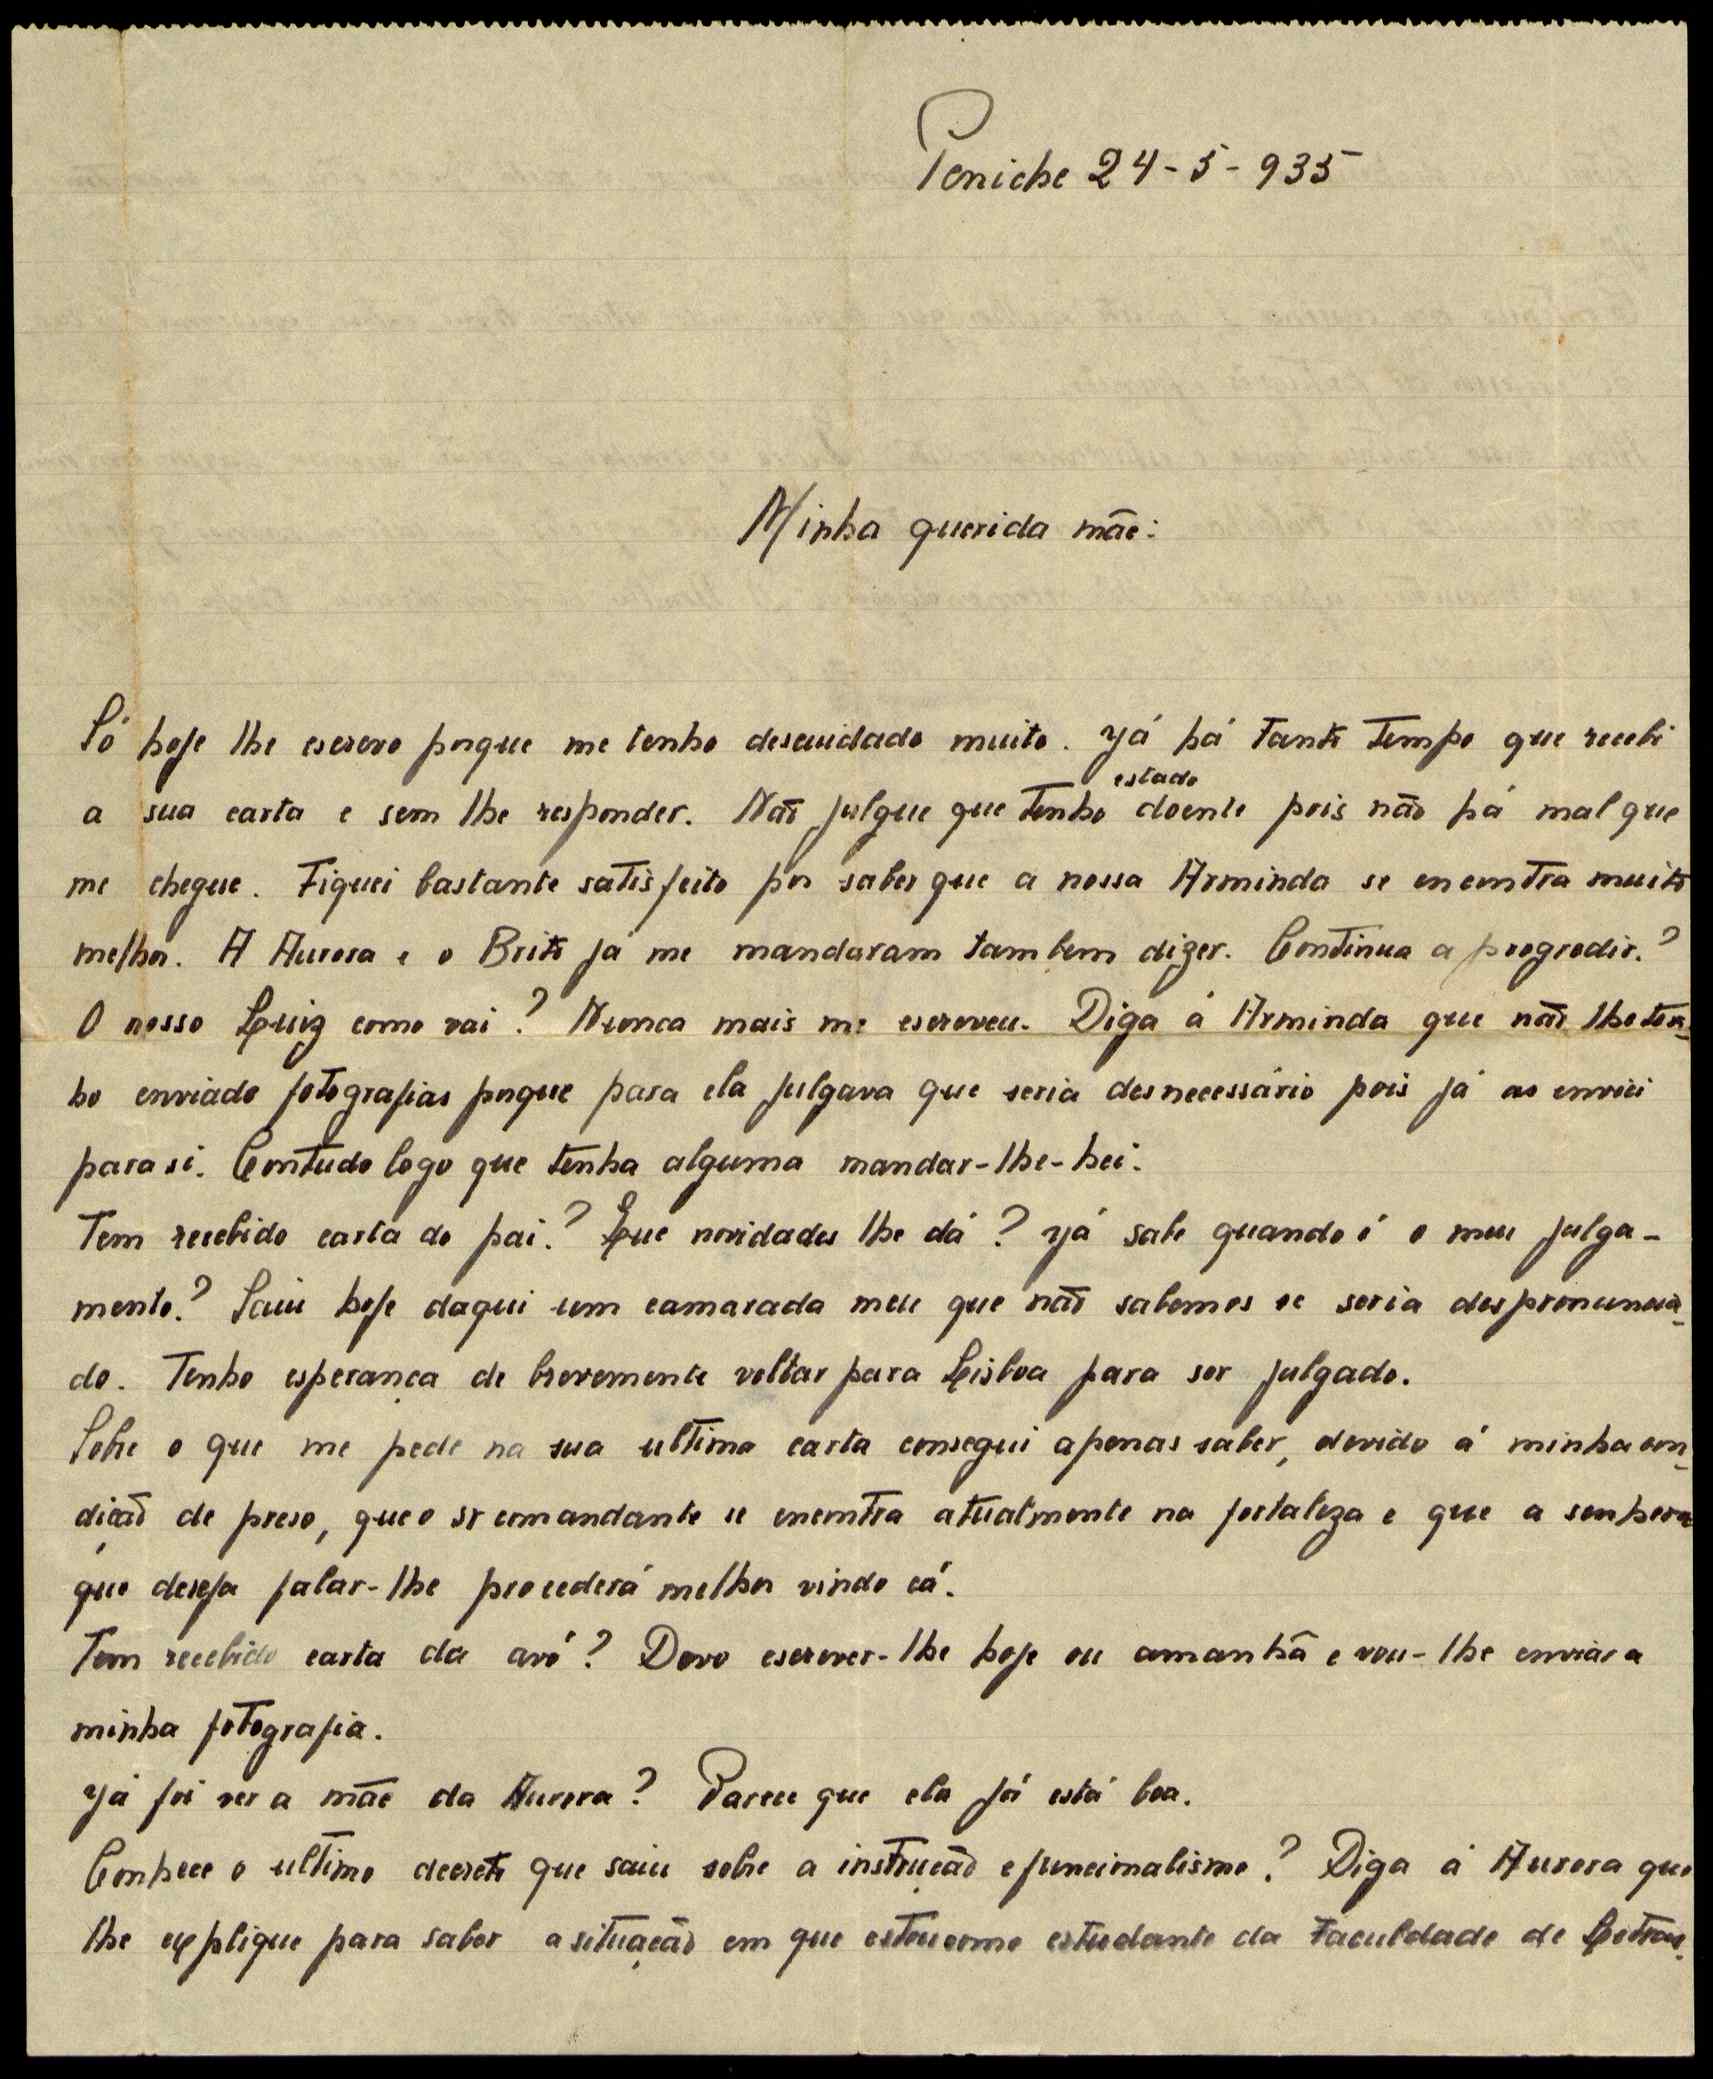 Peniche 24-5-935
Minha querida mãe:
Só hoje lhe escrevo porque me tenho descuidado muito. Já há tanto tempo que recebi
a sua carta e sem lhe responder. Não julgue que tenho estado doente pois não há mal que
me chegue. Fiquei bastante satisfeito por saber que a nossa Arminda se encontra muito
melhor. A Aurora e o Brito já me mandaram tambem dizer. Continua a progredir?
O nosso Luiz como vai? Nunca mais me escreveu. Diga á Arminda que não lhe ten-
ho enviado fotografias porque para ela julgava que seria desnecessário pois já as enviei
para si. Contudo logo que tenha alguma mandar-lhe-hei.
Tem recebido carta do pai? Que novidades lhe dá? Já sabe quando é o meu julga-
mento? Saiu hoje daqui um camarada meu que não sabemos se seria despronuncia-
do. Tenho esperança de brevemente voltar para Lisboa para ser julgado.
Sobre o que me pede na sua ultima carta consegui apenas saber, devido á minha con-
dição de preso, que o sr comandante se encontra atualmente na fortaleza e que a senhora
que deseja falar-lhe procederá melhor vindo cá.
Tem recebido carta da avó? Devo escrever-lhe hoje ou amanhã e vou-lhe enviar a
minha fotografia.
Já foi ver a mãe da Aurora? Parece que ela já está boa.
Conhece o ultimo decreto que saiu sobre a instrução e funcionalismo? Diga á Aurora que
lhe explique para saber a situação em que estou como estudante da Faculdade de Letras.